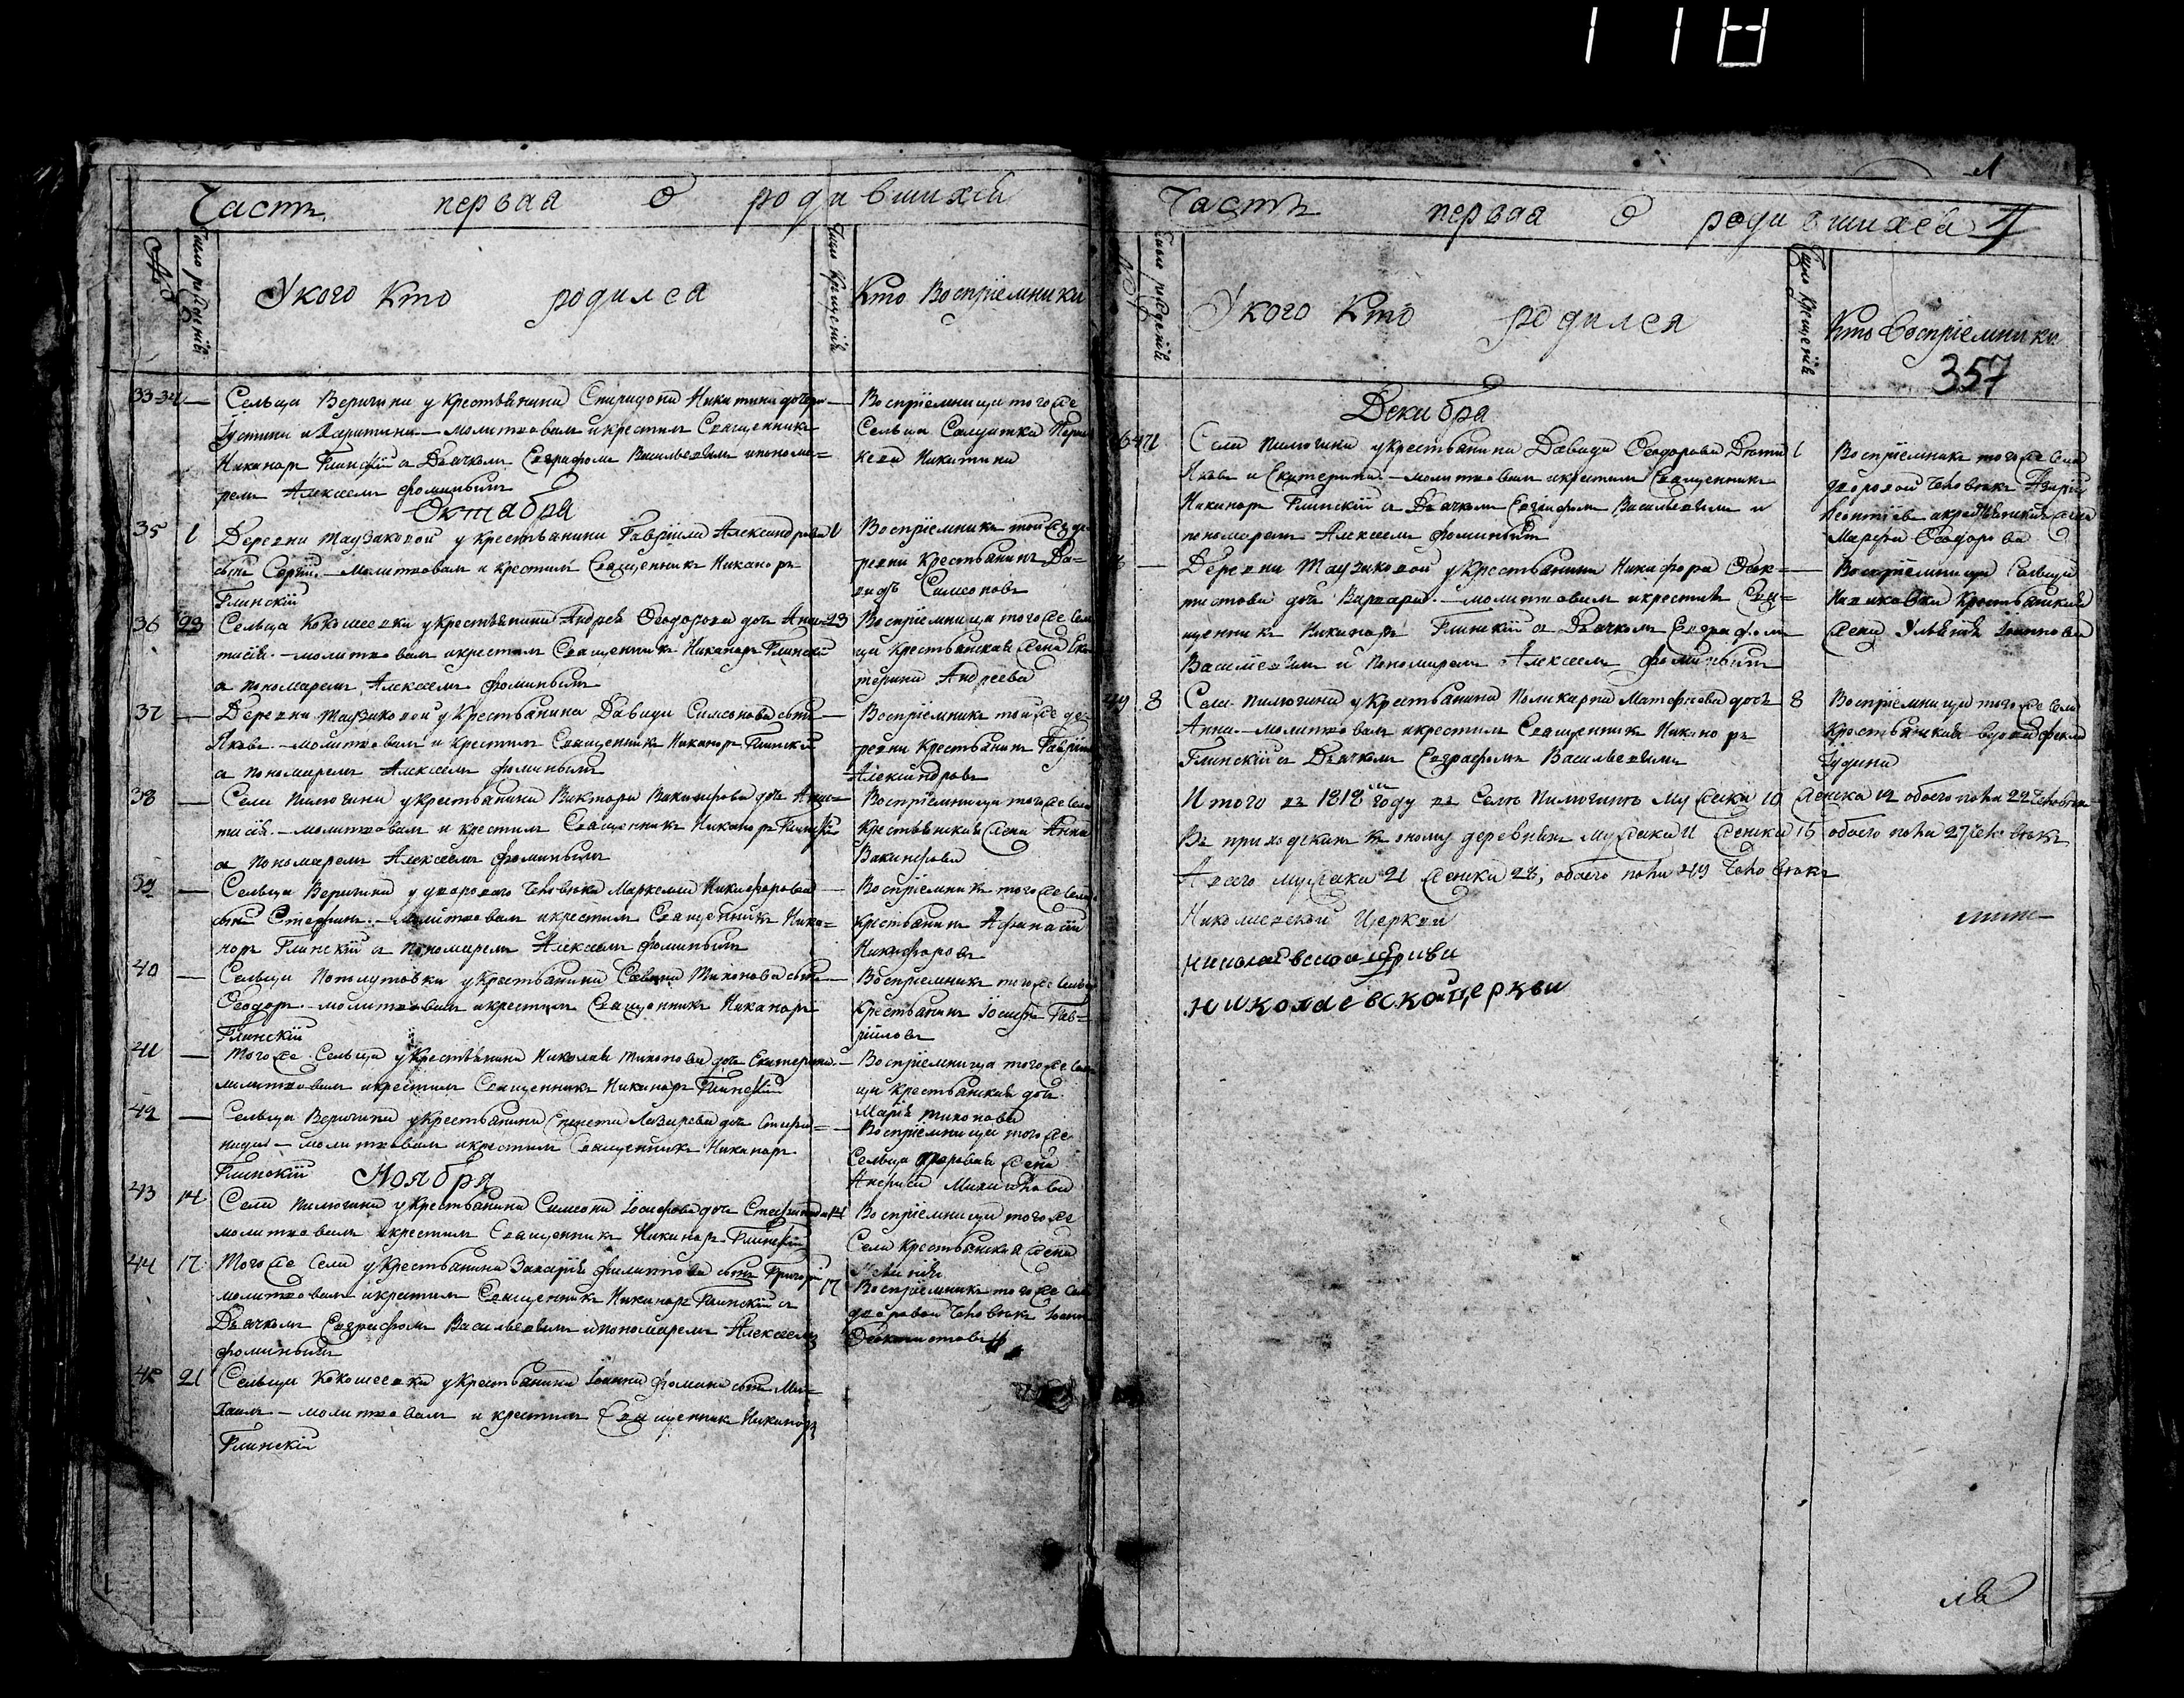 118
Часть первая о родившихся
№
Число рожденія
У кого кто родился
Число крещенія
Кто Воспріемники
33-34 — Сельца Веригина у крестьянина Спиридона Никитина дочери —
Іустина и Харитина — молитвовалъ и крестилъ Священникъ
Никаноръ Глинскій съ Дьячкомъ Евграфомъ Васильевымъ и понома=
ремъ Алексѣемъ Фоминымъ
Воспріемница того же
Сельца Солдатка
Никитина
Октября
35 1 Деревни Таузаковой у крестьянина Гавріила Александрова 1
сынъ Сергій. — Молитвовалъ и крестилъ Священникъ Никаноръ
Глинскій
Воспріемникъ той же де
ревни крестьянинъ Да=
видъ Симеоновъ
36 23 Сельца Кокошеевки у крестьянина Андрея Ѳеодорова дочь Анас= 23
тасія. — молитвовалъ и крестилъ Священникъ Никаноръ Глинскій
съ пономаремъ Алексѣемъ Фоминымъ
Воспріемница того же сель
ца крестьянская жена Ека
терина Андреева
37 — Деревни Таузаковой у крестьянина Давида Симеонова сынъ —
Яковъ. — молитвовалъ и крестилъ Священникъ Никаноръ Глинскій
съ пономаремъ Алексѣемъ Фоминымъ
Воспріемникъ той же де
ревни крестьянинъ Гавріилъ
Александровъ
38 — Села Пилюгина у крестьянина Виктора Вакинфова дочь Анас= —
тасія. — молитвовалъ и крестилъ Священникъ Никаноръ Глинскій
съ пономаремъ Алексѣемъ Фоминымъ
Воспріемница того же села
крестьянская жена Анна
Вакинфова
39 — Сельца Веригина у двороваго человѣка Маркела Никифорова —
сынъ Стефанъ. — молитвовалъ и крестилъ Священникъ Ника=
норъ Глинскій съ пономаремъ Алексѣемъ Фоминымъ
Воспріемникъ того же сельца
крестьянинъ Афанасій
Никифоровъ
40 — Сельца Потулутовки у крестьянина Саввы Тихонова сынъ —
Ѳеодоръ. — молитвовалъ и крестилъ Священникъ Никаноръ
Глинскій
Воспріемникъ того же сельца
крестьянинъ Іосифъ Гав=
ріиловъ
41 — Того же Сельца у крестьянина Николая Тихонова дочь Екатерина. —
молитвовалъ и крестилъ Священникъ Никаноръ Глинскій
Воспріемница того же сель
ца крестьянская дочь
Марія Тихонова
42 — Сельца Веригина у крестьянина Лазарева дочь Стефа= —
нида — молитвовалъ и крестилъ Священникъ Никаноръ
Глинскій
Воспріемница того же
Сельца дворовая жена
Анфиса Михайлова
Ноября
43 14 Села Пилюгина у крестьянина Симеона Іосифова дочь Стефанида 14
молитвовалъ и крестилъ Священникъ Никаноръ Глинскій
Воспріемница того же
Села крестьянская жена
44 17 Того же Села у крестьянина Захарія Филиппова сынъ Григорій 17
молитвовалъ и крестилъ Священникъ Никаноръ Глинскій съ
Дьячкомъ Евграфомъ Васильевымъ и пономаремъ Алексѣемъ
Фоминымъ
Воспріемникъ того же села
дворовой человѣкъ Іоаннъ
45 21 Сельца Кокошеевки у крестьянина Іоанна Фомина сынъ Ми=
хаилъ — молитвовалъ и крестилъ Священникъ Никаноръ
Глинскій
Часть первая о родившихся 4
№
Число рожденія
У кого кто родился
Число крещенія
Кто Воспріемники
357
Декабря
Села Пилюгина у крестьянина Давида Ѳеодорова Дѣти 1
Яковъ и Екатерина. — молитвовалъ и крестилъ Священникъ
Никаноръ Глинскій съ Дьячкомъ Евграфомъ Васильевымъ и
пономаремъ Алексѣемъ Фоминымъ
Воспріемникъ того же Села
дворовой человѣкъ
Леонтіевъ и крестьянская жена
Марфа Ѳеодорова
— Деревни Таузаковой у крестьянина Никифора Ѳеок= —
тистова дочь Варвара. — молитвовалъ и крестилъ Свя=
щенникъ Никаноръ Глинскій съ Дьячкомъ Евграфомъ
Васильевымъ и пономаремъ Алексѣемъ Фоминымъ
Воспріемница Сельца
крестьянская
жена Ульянія Іоаннова
49 8 Села Пилюгина у крестьянина Поликарпа Матфеева дочь 8
Анна — молитвовалъ и крестилъ Священникъ Никаноръ
Глинскій съ Дьячкомъ Евграфомъ Васильевымъ
Воспріемница того же села
крестьянская вдова
Іудина
Итого въ 1818м году въ Селѣ Пилюгинѣ мужеска 10 женска 12 обоего пола 22 человѣкъ
Въ приходскихъ к оному деревняхъ мужеска 11 женска 16 обоего пола 27 человѣкъ
А всего мужеска 21 женска 28, обоего пола 49 человѣкъ
Николаевской Церкви
Николаевской Церкви
Николаевской Церкви